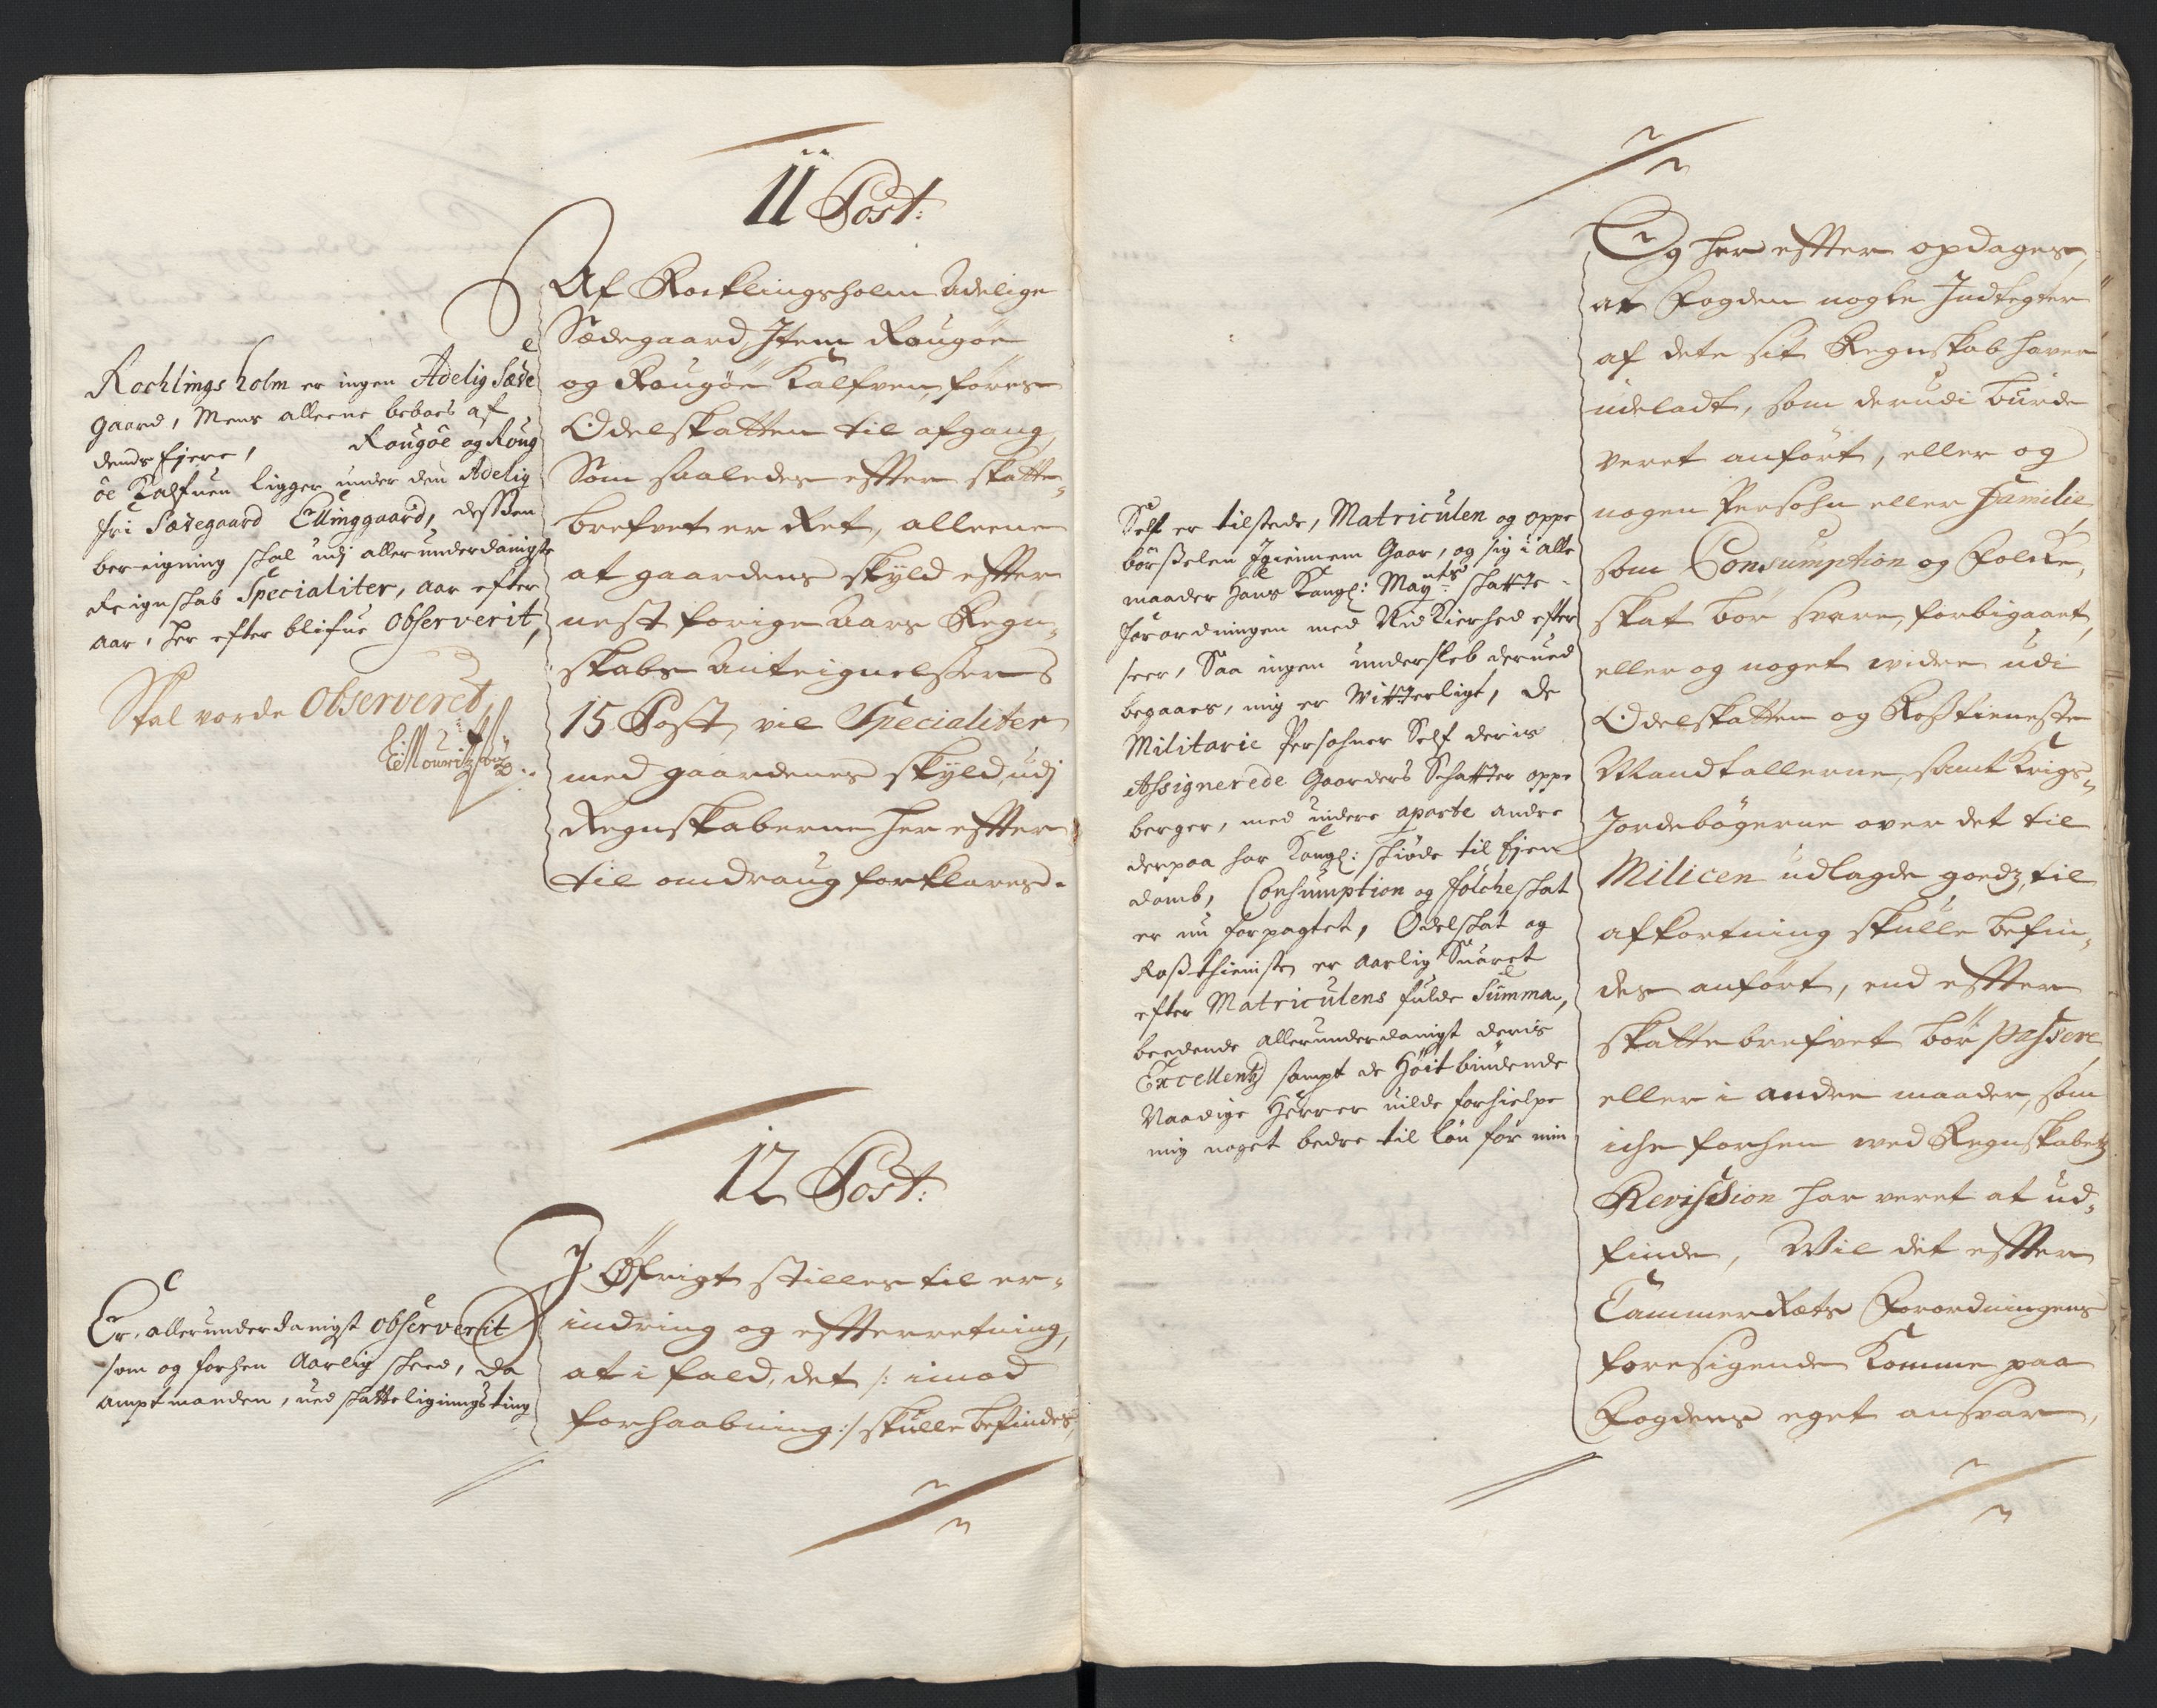 11 Post:
Af Rocklingsholm Adelige
Sædegaard, Item Rougøe
og Rougøe Kalfven, føres
Odelskatten til afgang,
Som saaledes effter skatte-
brefvet er Ret, alleene
at gaardens skyld effter
nest forige Aars Regn-
skabs Anteignelsers
15 Post, vil Specialiter
med gaardenes skyld, udj
Regnskaberne her effter
til omdraug forklares.
Rochlingsholm er ingen Adelig Sæde
gaard, Mens alleene beboes af
dends Ejere, Rougöe og Roug
öe Kalfuen ligger under den Adelig
fri Sædegaard Ellinggaard, desßen
bereigning skal udj allerunderdanigste
Reignskab Specialiter, aar efter
aar, her efter blifue observerit,
Skal vorde Observeret,
12 Post:
J Øfrigt stilles til er-
indring og effterretning,
at i fald, det /: imod
forhaabning :/ skulle befindes,
Er, allerunderdanigst observerit
som og forhen Aarlig skeed, da
amptmanden, ued skatteligningsting
Self er tilstede, Matriculen og oppe
börßelen Igiennem Gaar, og sig i alle
maader hans Kongl: Mayts: skatte-
forordningen med Nidkierhed efter
seer, Saa ingen undersleb derued
begaaes, mig er Witterligt, de
Militarie Persohner Self deris
Assignerede Gaarders Schatter oppe
berger, med uidere aparte andre
derpaa har Kongl: skiøde til Ejen
domb, Consumption og folcheskat
er nu forpagtet, Odelskat og
Roß thienisten er Aarlig Suaret
efter Matriculens fulde Summa,
beedende allerunderdanigst deris
Excellentz sampt de Höit biudende
Naadige Herrer uilde forhielpe
mig noget bedre til lön for min
Og her effter opdages,
at Fogden nogle Indtegter
af dete sit Regnskab haver
udeladt, som derudi burde
veret anført, eller og
nogen Persohn eller Familie,
som Consumption og Folke-
skat bör svare, forbigaaet,
eller og noget widre udi
Odelskatten og Roßtieneste
Mandtallerne, samt Krigs-
Jordebögerne over det til
Milicen udlagde goedz, til
afkortning skulle befin-
des anført, end effter
skattebrefvet bör passere
eller i andre maader, som
iche forhen wed Regnskabetz
Revission har veret at ud-
finde, Wil dit effter
CammerRets Forordningens
foresigende Komme paa
Fogdens eget ansvar,